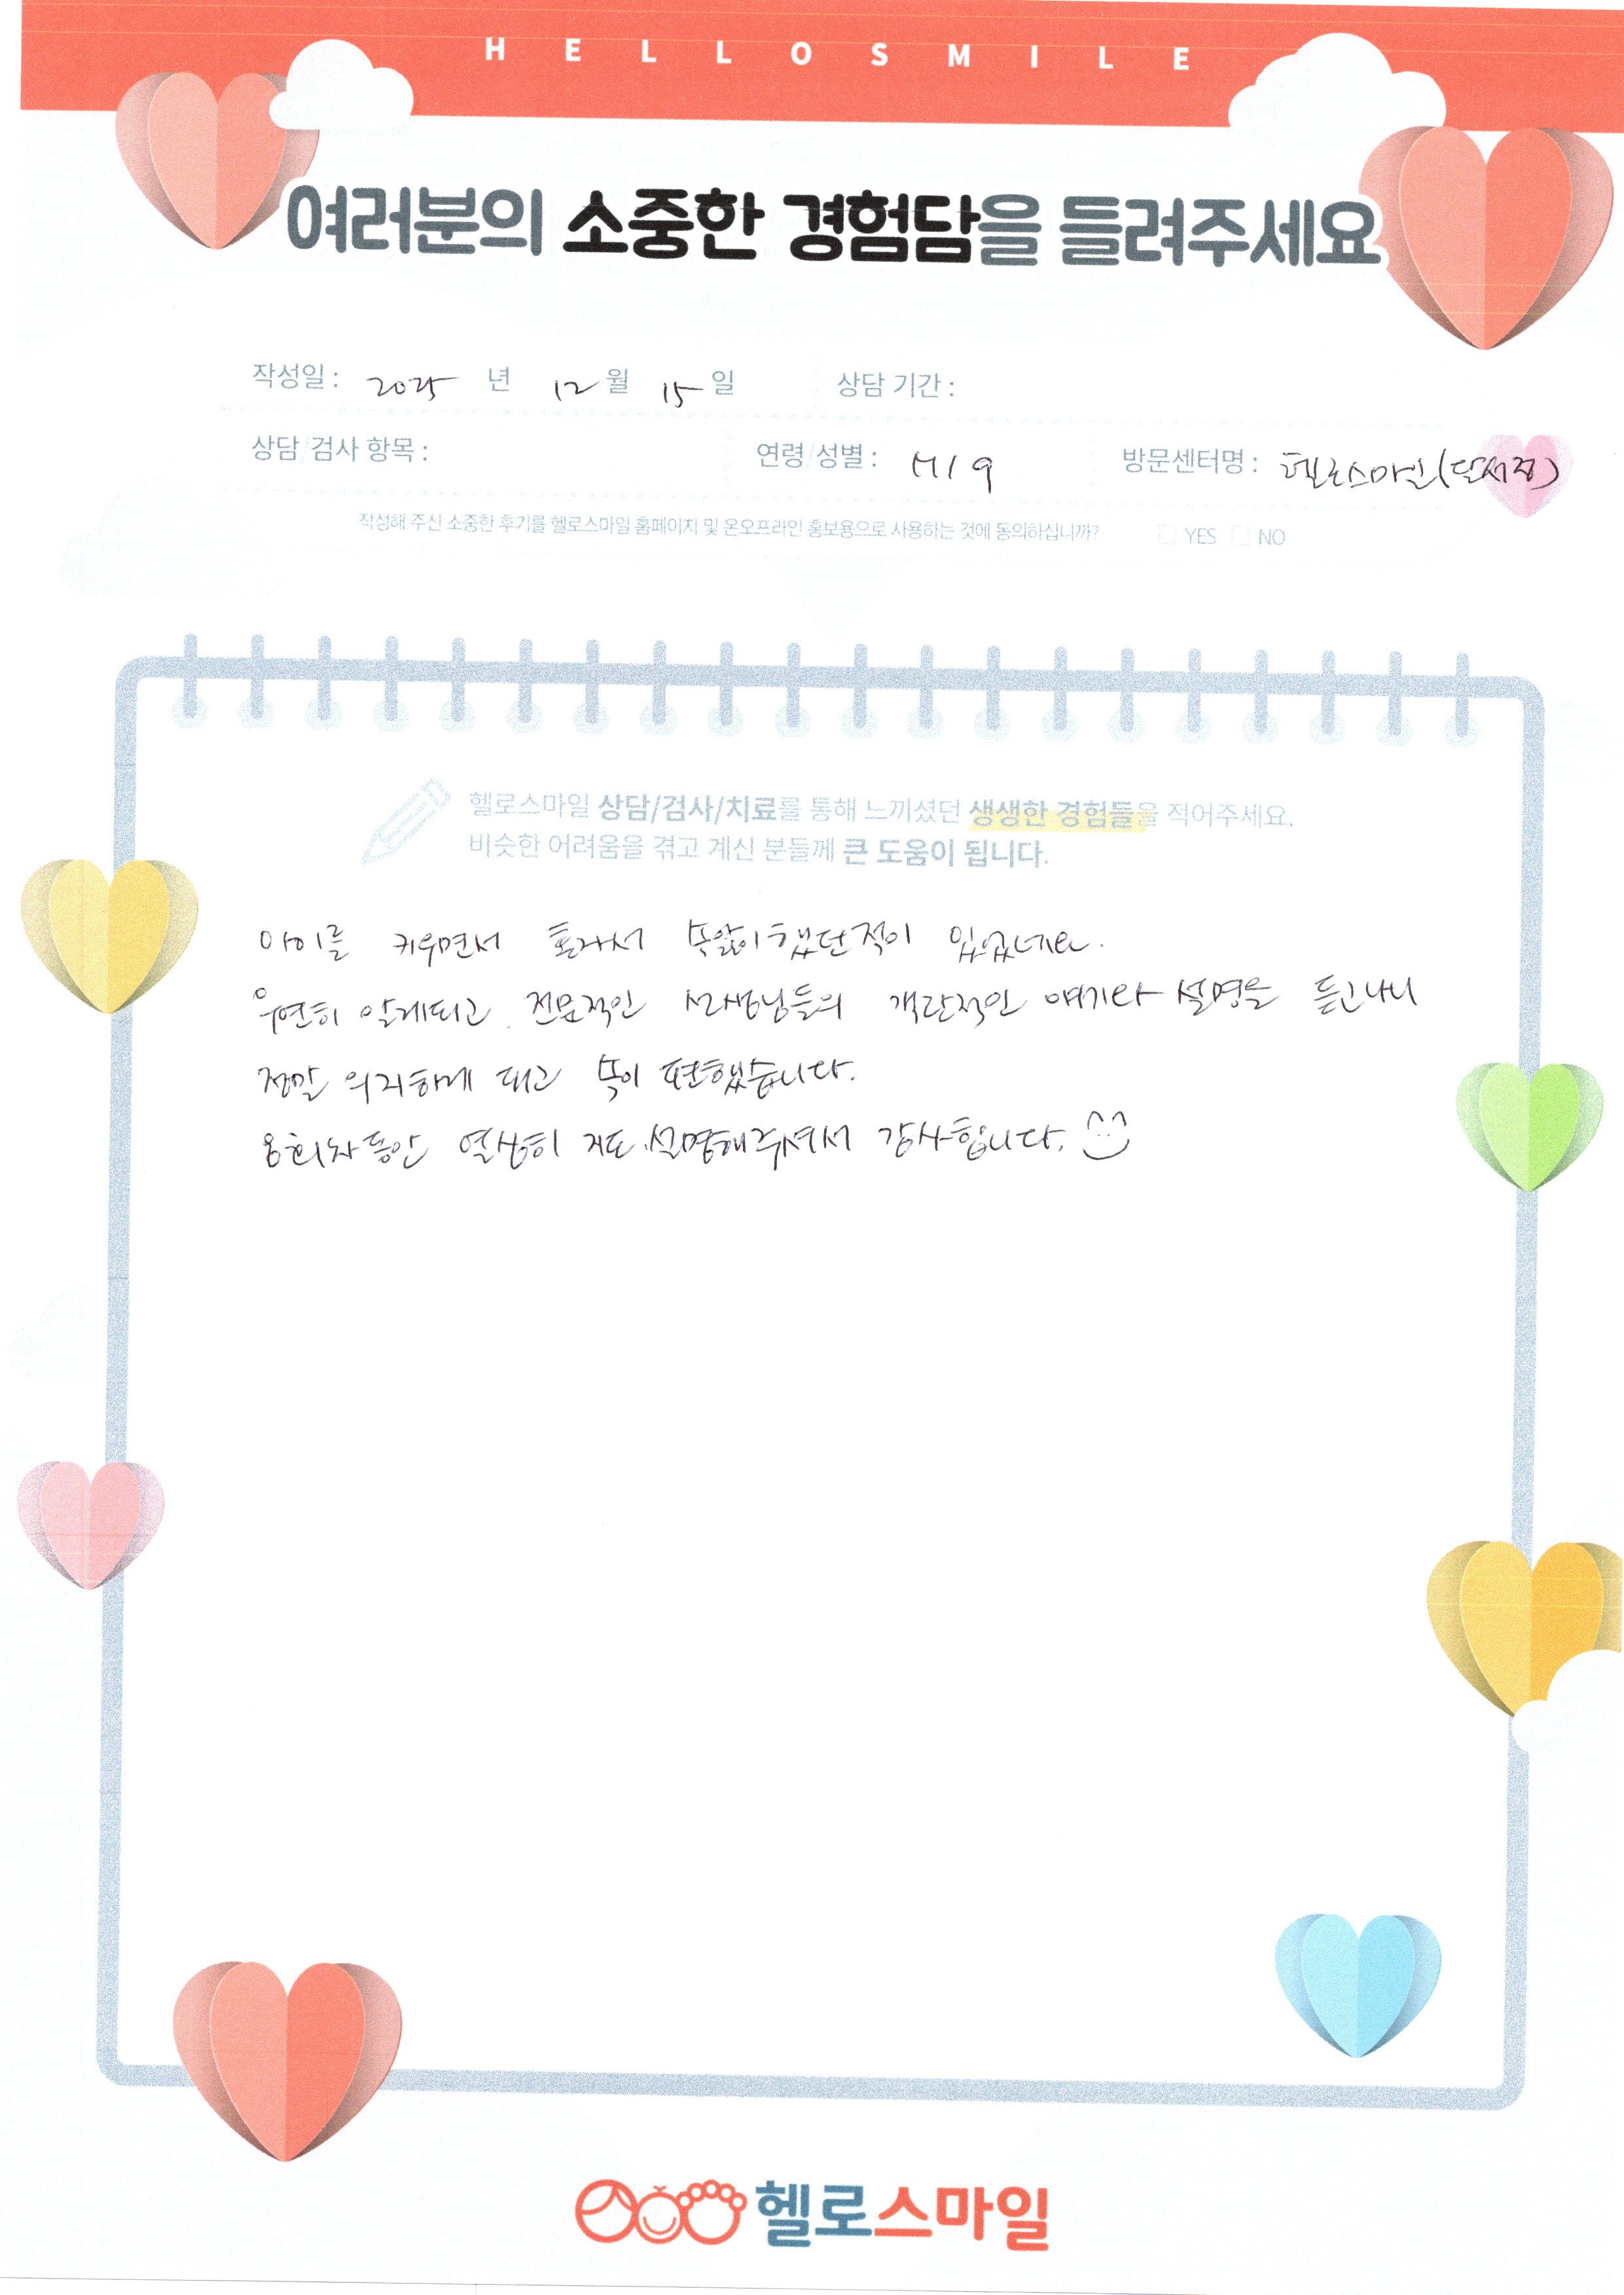 HELLOSMILE
여러분의 소중한 경험담을 들려주세요
작성일 : 2025 년 12 월 15 일 상담 기간 :
상담/검사 항목 : 연령/성별 : M/9 방문센터명 : 헬로스마일(달서점)
작성해 주신 소중한 후기를 헬로스마일 홈페이지 및 온오프라인 홍보용으로 사용하는 것에 동의하십니까? YES NO
헬로스마일 상담/검사/치료를 통해 느끼셨던 생생한 경험들을 적어주세요.
비슷한 어려움을 겪고 계신 분들께 큰 도움이 됩니다.
아이를 키우면서 혼자서 속앓이했던적이 있었네요.
우연히 알게되고 전문적인 선생님들의 객관적인 얘기와 설명을 듣고나니
정말 의지하게 되고 속이 편했습니다.
8회차동안 열심히 지도.설명해주셔서 감사합니다.
헬로스마일